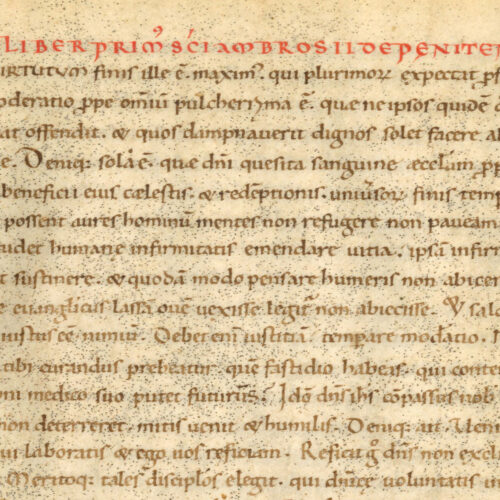 LIBER PRIM' SCI AMBROSII DE PENITE
IRTUTUM finis ille ē. maxim'. qui plurimor expectat p
oderatio prope omium pulcherrima ē. que ne ipsos quidē
at offendit. & quos dampnauerit dignos solet facere ab
e. Deniq: sola ē. que dni quesita sanguine æcclam p
beneficii eius cælestis. & redēptionis. uniuersor finis temp
possent aures hominū mentes non refugere non paueant
udet humane infirmitatis emendare uitia. ipsā infirm
t sustinere. & quodā modo pensare humeris non abicere
e euanglicus lassā ouē uexisse legitr non abiecisse.
iustus eē nimiū. Debet eni iustitiā tempare moderatio.
tibi curandus prebeatur. quē fastidio habeas. qui conte
ni medico suo putet futurus? Ido dns ihs cōpassus nob
non deterreret. mitis uenit & humilis. Deniq: ait. Ueni
ui laboratis & ego uos reficiam. Reficit g dns non excl
Meritoq: tales disciplos elegit. qui dnice uoluntatis in